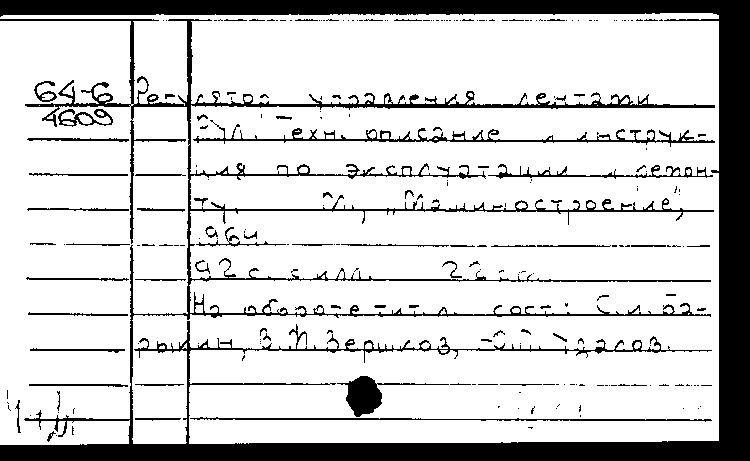 64-6
4609
Регулятор управления лентами
РУЛ. Техн. описание и инструк-
ция по эксплуатации и ремон-
ту. М., „Машиностроение",
1964.
92 с. с илл. 22 см.
На обороте тит. л. сост: С.И. Ба-
рыкин, В.И. Вершков, Удалов.